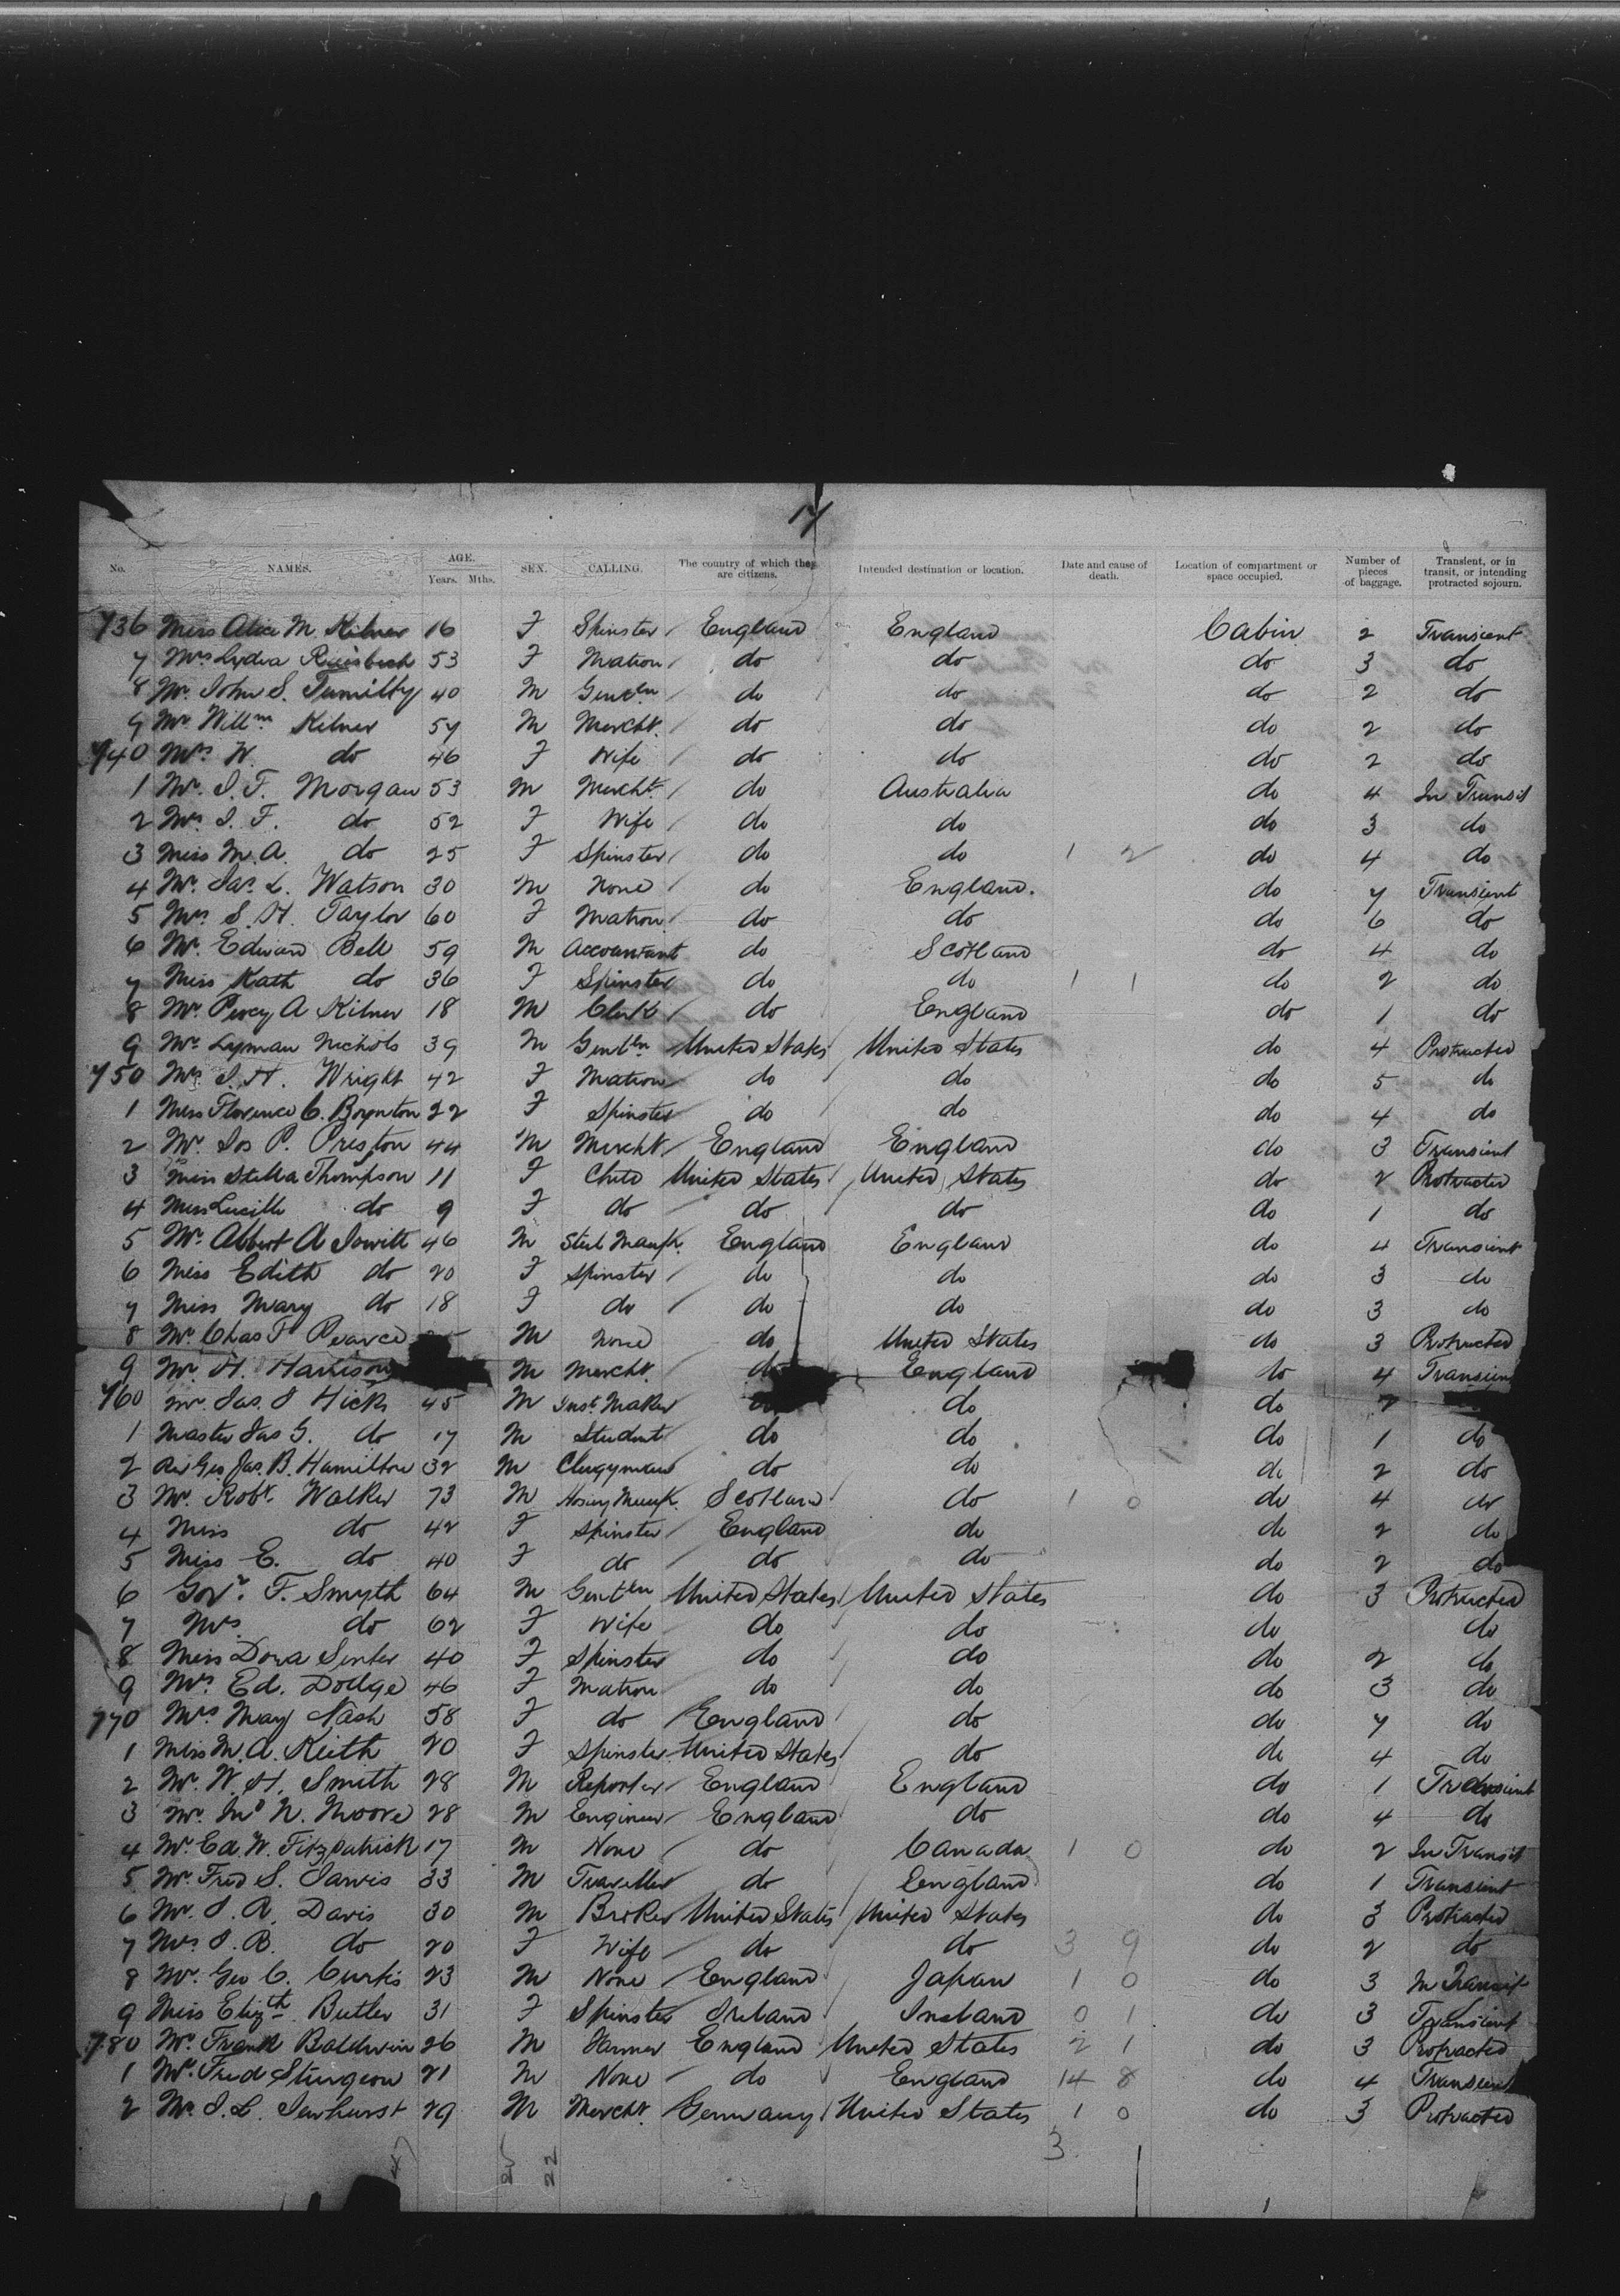 17
No. NAMES. AGE. Years. Mths. SEX. CALLING. The country of which they are citizens. Intended destination or location. Date and cause of death. Location of compartment or space occupied. Number of pieces of baggage. Transient, or in transit, or intending protracted sojourn.
736 Miss Alice M. Kilner 16 F Spinster England England Cabin 2 Transient
7 Mrs Lydia 53 F Matron do do do 3 do
8 Mr. John S. Tumilty 40 M Gentln do do do 2 do
9 Mr Willm Kilner 57 M Mercht. do do do 2 do
740 Mrs W. do 46 F Wife do do do 2 do
1 Mr. J. F. Morgan 53 M Mercht. do Australia do 4 In Transit
2 Mrs J. F. do 52 F Wife do do do 3 do
3 Miss M. A. do 25 F Spinster do do 1 2 do 4 do
4 Mr. Jas. L. Watson 30 M None do England. do 7 Transient
5 Mrs S. H. Taylor 60 F Matron do do do 6 do
6 Mr. Edward Bell 59 M Accountant do Scotland do 4 do
7 Miss Kath do 36 F Spinster do do 1 1 do 2 do
8 Mr. Percy A Kilner 18 M Clerk do England do 1 do
9 Mr. Lyman Nichols 39 M Gentln United States United States do 4 Protracted
750 Mrs J. H. Wright 42 F Matron do do do 5 do
1 Miss Florence C. Boynton 22 F Spinster do do do 4 do
2 Mr. Jos P. Preston 44 M Mercht. England England do 3 Transient
3 Miss Stella Thompson 11 F Child United States United States do 2 Protracted
4 Miss Lucille do 9 F do do do do 1 do
5 Mr. Albert A Jowitt 46 M Steel Manfr. England England do 4 Transient
6 Miss Edith do 20 F Spinster do do do 3 do
7 Miss Mary do 18 F do do do do 3 do
8 Mr. Chas F Pearce M None do United States do 3 Protracted
9 Mr. H. Harrison M Mercht. do England do 4 Transient
760 Mr. Jas. J Hicks 45 M Inst. Maker do do do 2
1 Master Jas G. do 17 M Student do do do 1 do
2 Rev Geo Jas. B. Hamilton 32 M Clergyman do do do 2 do
3 Mr. Robt. Walker 73 M Hosiery Manfr. Scotland do 1 0 do 4 do
4 Miss do 42 F Spinster England do do 2 do
5 Miss E. do 40 F do do do do 2 do
6 Govr. F. Smyth 64 M Gentln United States United States do 3 Protracted
7 Mrs do 62 F Wife do do do do
8 Miss Dora Senter 40 F Spinster do do do 2 do
9 Mrs. Ed. Dodge 46 F Matron do do do 3 do
770 Mrs May Nash 58 F do England do do 7 do
1 Miss M. A. Keith 20 F Spinster United States do do 4 do
2 Mr. W. H. Smith 28 M Reporter England England do 1 Transient
3 Mr. Jno N. Moore 28 M Engineer England do do 4 do
4 Mr. Ed. W. Fitzpatrick 17 M None do Canada 1 0 do 2 In Transit
5 Mr. Fred S. Jarvis 33 M Traveller do England do 1 Transient
6 Mr. J. B. Davis 30 M Broker United States United States do 3 Protracted
7 Mrs J. B. do 20 F Wife do do 3 9 do 2 do
8 Mr. Geo C. Curtis 23 M None England Japan 1 0 do 3 In Transit
9 Miss Elizth Butler 31 F Spinster Ireland Ireland 0 1 do 3 Transient
780 Mr. Frank Baldwin 26 M Farmer England United States 2 1 do 3 Protracted
1 Mr. Fred Sturgeon 21 M None do England 14 8 do 4 Transient
2 Mr. J. L. Dewhurst 29 M Mercht. Germany United States 1 0 do 3 Protracted
3
22